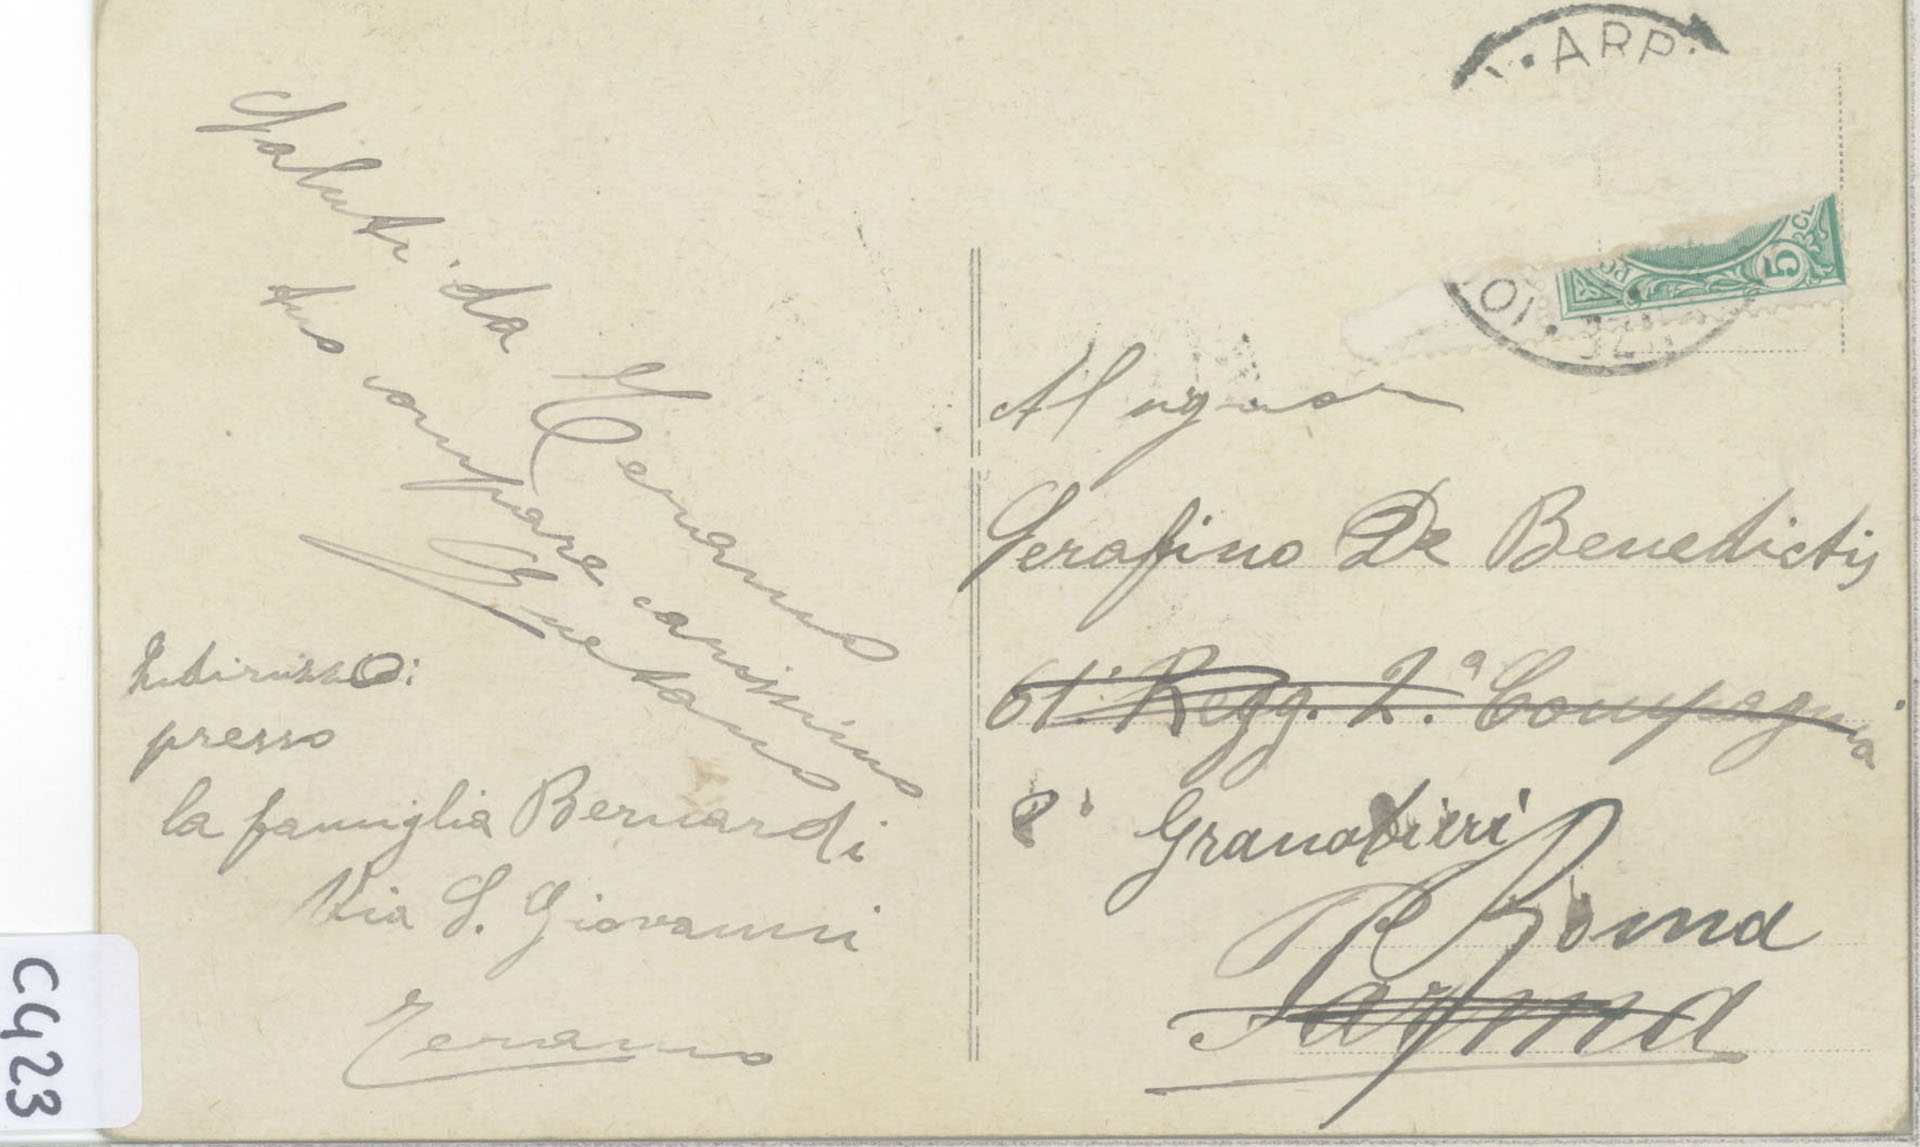 Saluti da Teramo
tuo compare carissimo
Gaetano
Indirizzo:
presso
la famiglia Bernardi
Via S. Giovanni
Teramo
ARR.
5
Al signor
Serafino De Benedictis
61° Regg. 2.ª Compagnia
2° Granatieri
Roma
Parma
C423